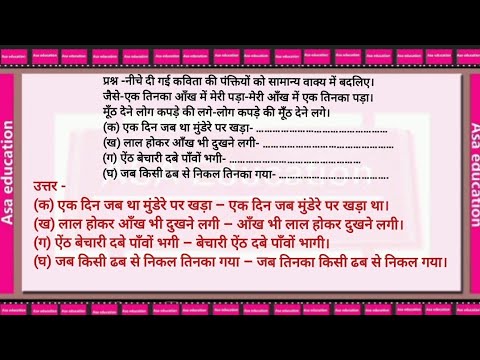 प्रश्न -नीचे दी गई कविता की पंक्तियों को सामान्य वाक्य में बदलिए।
जैसे-एक तिनका आँख में मेरी पड़ा-मेरी आँख में एक तिनका पड़ा।
मूँठ देने लोग कपड़े की लगे-लोग कपड़े की मूँठ देने लगे।
(क) एक दिन जब था मुंडेरे पर खड़ा- ................................................
(ख) लाल होकर आँख भी दुखने लगी- ................................................
(ग) ऐंठ बेचारी दबे पाँवों भगी- ................................................
(घ) जब किसी ढब से निकल तिनका गया- ........................................
उत्तर -
(क) एक दिन जब था मुंडेरे पर खड़ा – एक दिन जब मुंडेरे पर खड़ा था।
(ख) लाल होकर आँख भी दुखने लगी – आँख भी लाल होकर दुखने लगी।
(ग) ऐंठ बेचारी दबे पाँवों भगी – बेचारी ऐंठ दबे पाँवों भागी।
(घ) जब किसी ढब से निकल तिनका गया – जब तिनका किसी ढब से निकल गया।
Asa education
Asa education